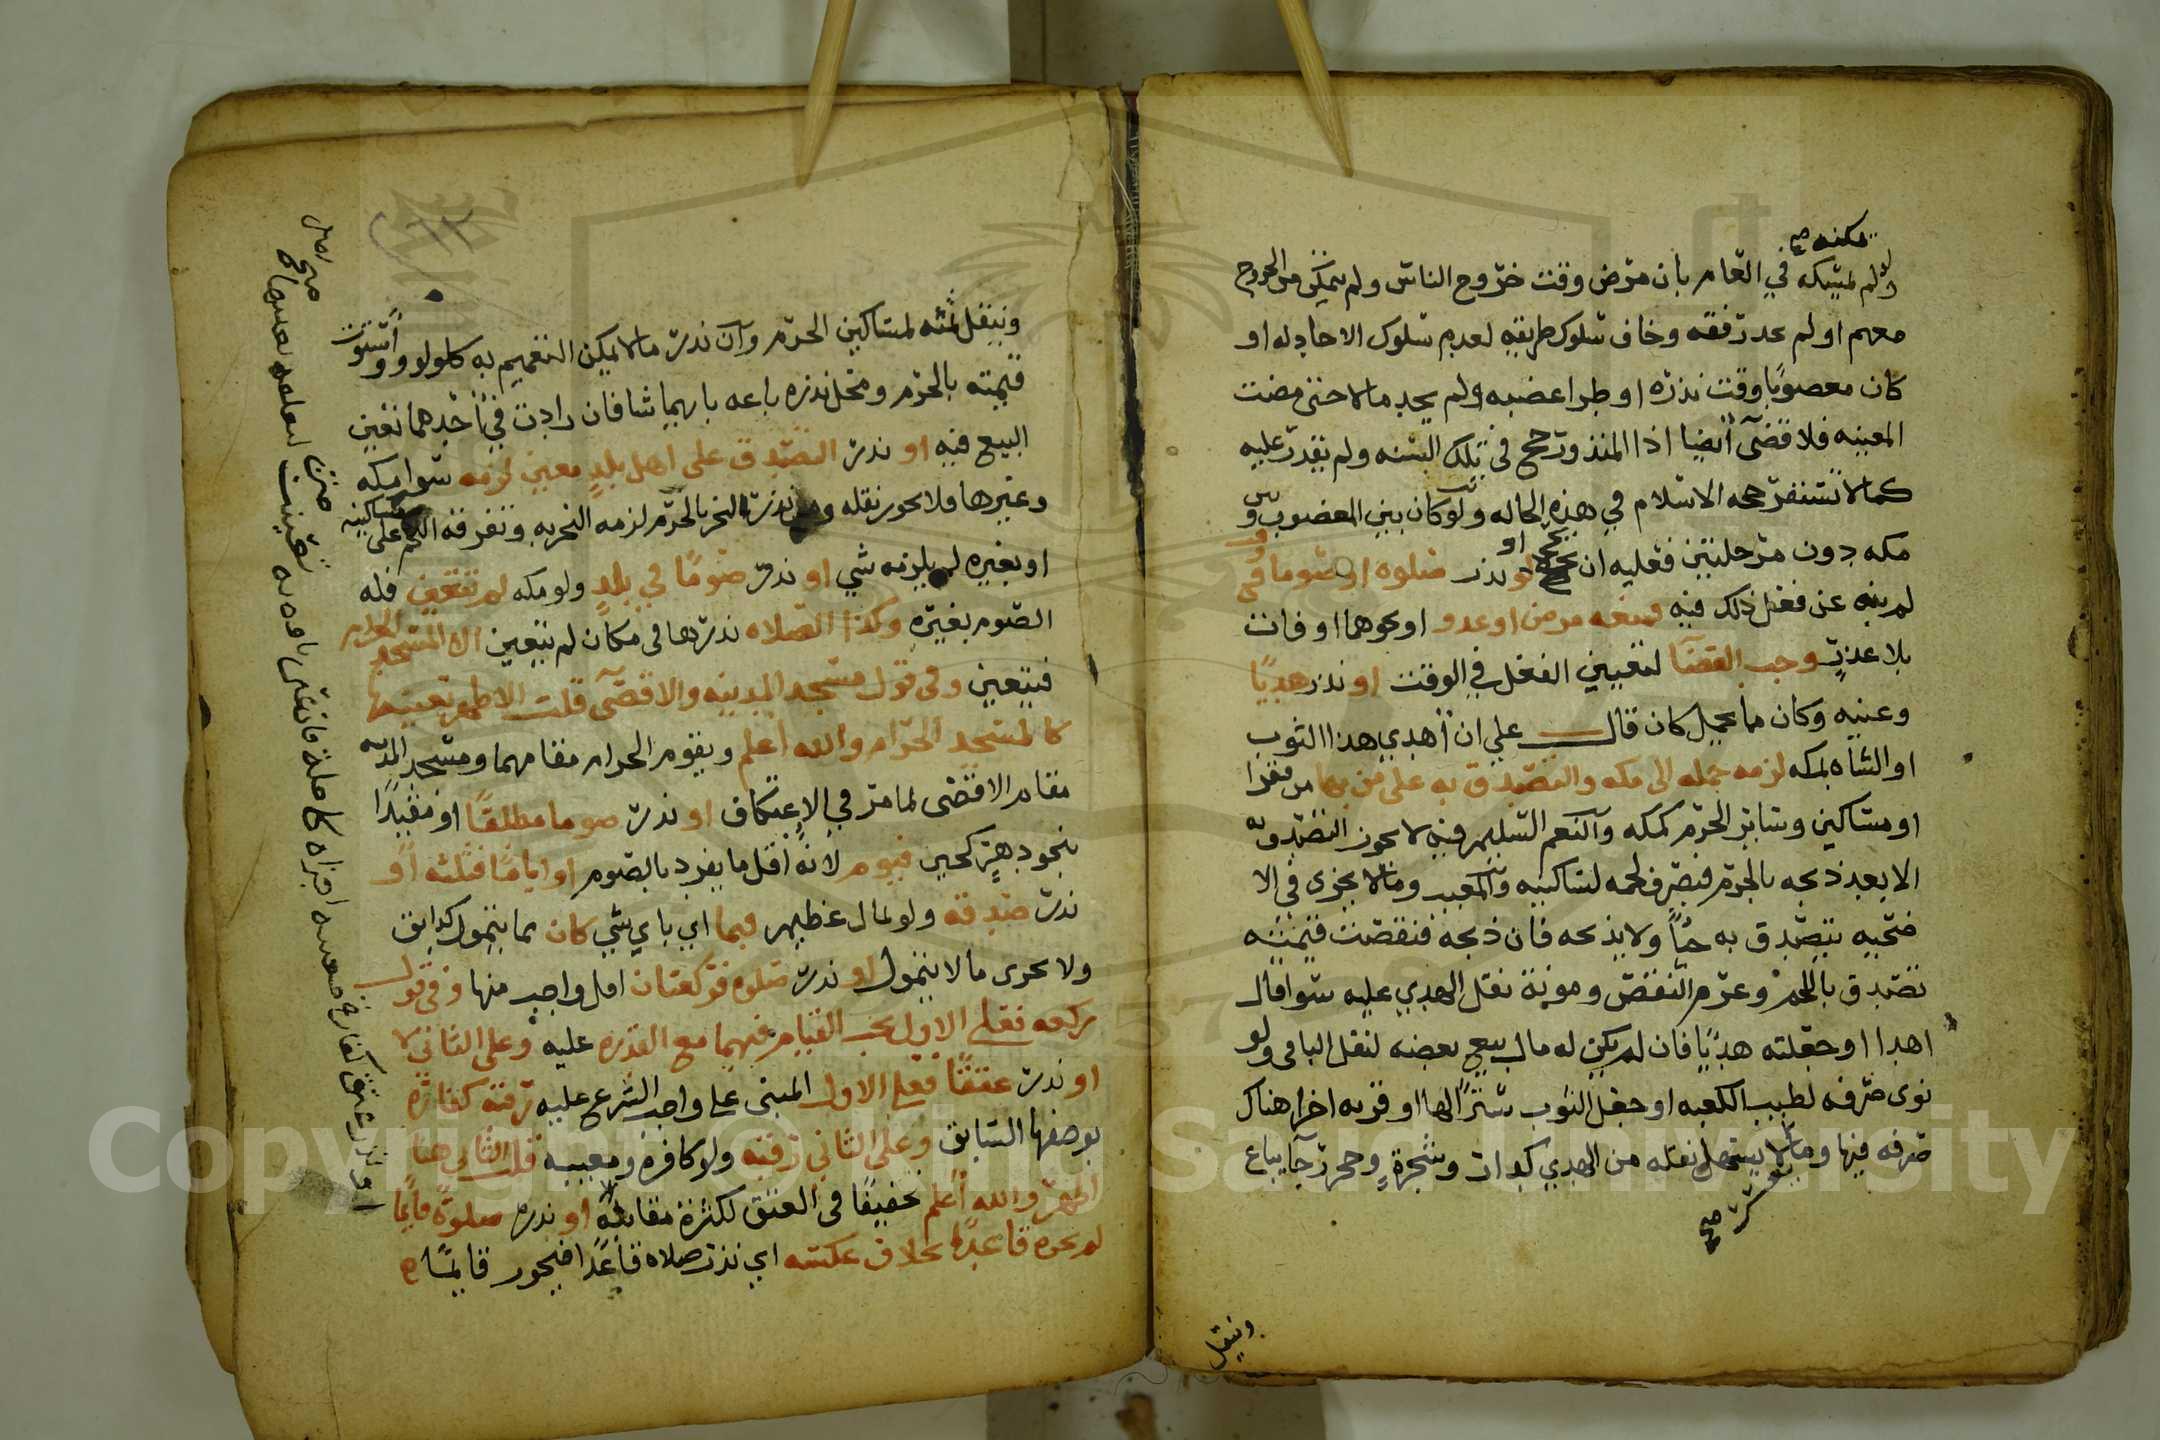 يمكنه صح
ولم في العام بان مرض وقت خروج الناس ولم يتمكن من الخروج
معهم او لم يجد رفقه وخاف سلوك طريقه لعدم سلوك الاحاد له او
كان معضوبًا وقت نذره او طرا عضبه ولم يجد مالا حتى مضت
المعينه فلا قضآ أيضا اذا المنذور حج في تلك السنه ولم يقدر عليه
كما لا تستقر حجه الاسلام في هذه الحاله ولو كان بين المعضوب وبين
مكه دون مرحلتين فعليه ان يحج او نذر صلوه او صوما في
لم ينه عن فعل ذلك فيه فمنعه مرض او عدو او نحوهما او فاتت
بلا عذرٍ وجب القضآ لتعيين الفعل في الوقت او نذر هديًا
وعينه وكان مما يحمل كان قال علي ان أهدي هذا الثوب
او الشاه لمكه لزمه حمله الى مكه والتصدق به على من بها من فقرا
او مساكين وسائر الحرم كمكه والنعم السليم فيه لا يجوز التصدق به
الا بعد ذبحه بالحرم فيصرف لحمه لمساكينه والمعيب ومالا يجزى في الا
ضحيه يتصدق به حيًا ولا يذبحه فان ذبحه فنقصت قيمته
تصدق باللحم وغرم النقص ومونة نقل الهدي عليه سوا قال
اهدا او جعلته هديًا فان لم يكن له مال بيع بعضه لنقل الباقى ولو
نوى صرفه لطيب الكعبه او جعل الثوب سترًا لها او قربه اخرا هناك
صرفه فيها وما لا يسهل نقله من الهدي كدار وشجرةٍ وحجر رحا يباع
صح
وينقل
وينقل ثمنه لمساكين الحرم وان نذر مالا يمكن التعميم به كلولو واستوت
قيمته بالحرم ومحل نذره باعه بايهما شا فان زادت في أحدهما تعين
البيع فيه او نذر التصدق على اهل بلدٍ معين لزمه سوا مكه
وغيرها فلا يجوز نقله ومن نذر النحر بالحرم لزمه النحر به وتفرقة اللحم على مساكينه
او بغيره لم يلزمه شي او نذر صومًا في بلدٍ ولو مكه لم يتعين فله
الصوم بغيره وكذا الصلاه نذرها في مكان لم يتعين الا المسجد الحرام
فيتعين وفى قول مسجد المدينه والاقصى قلت الاظهر تعينهما
كالمسجد الحرام والله أعلم ويقوم الحرام مقامهما ومسجد المدينه
مقام الاقصى لما مر في الاعتكاف او نذر صوما مطلقًا او مقيدًا
بنحو دهرٍ كحين فيوم لانه أقل ما يفرد بالصوم او ايامًا فثلثه او
نذر صدقه ولو لمال عظيم فبما اي باي شي كان مما يتمول كدانق
ولا يجزى ما لا يتمول او نذر صلوه فركعتان اقل واجب منها وفى قول
ركعه فعلى الاول يجب القيام فيهما مع القدره عليه وعلى الثاني لا
او نذر عتقًا فعلى الاول المبنى على واجب الشرع عليه رقبه كفاره
بوصفها السابق وعلى الثاني رقبه ولو كافره ومعيبه قلت الثاني هنا
اظهر والله أعلم تخفيفًا في العتق لكثرة مقابله او نذر صلوة قايمًا
لم يجزه قاعدًا بخلاف عكسه اي نذر صلاه قاعدًا فيجوز قائمًا